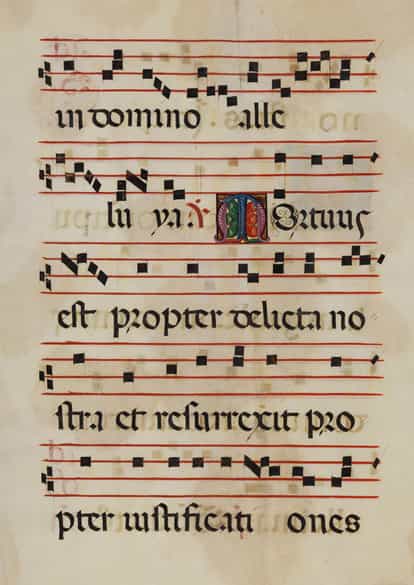 in domino alle
lu ya. V Mortuus
est propter delicta no
stra et resurrexit pro
pter iustificati ones